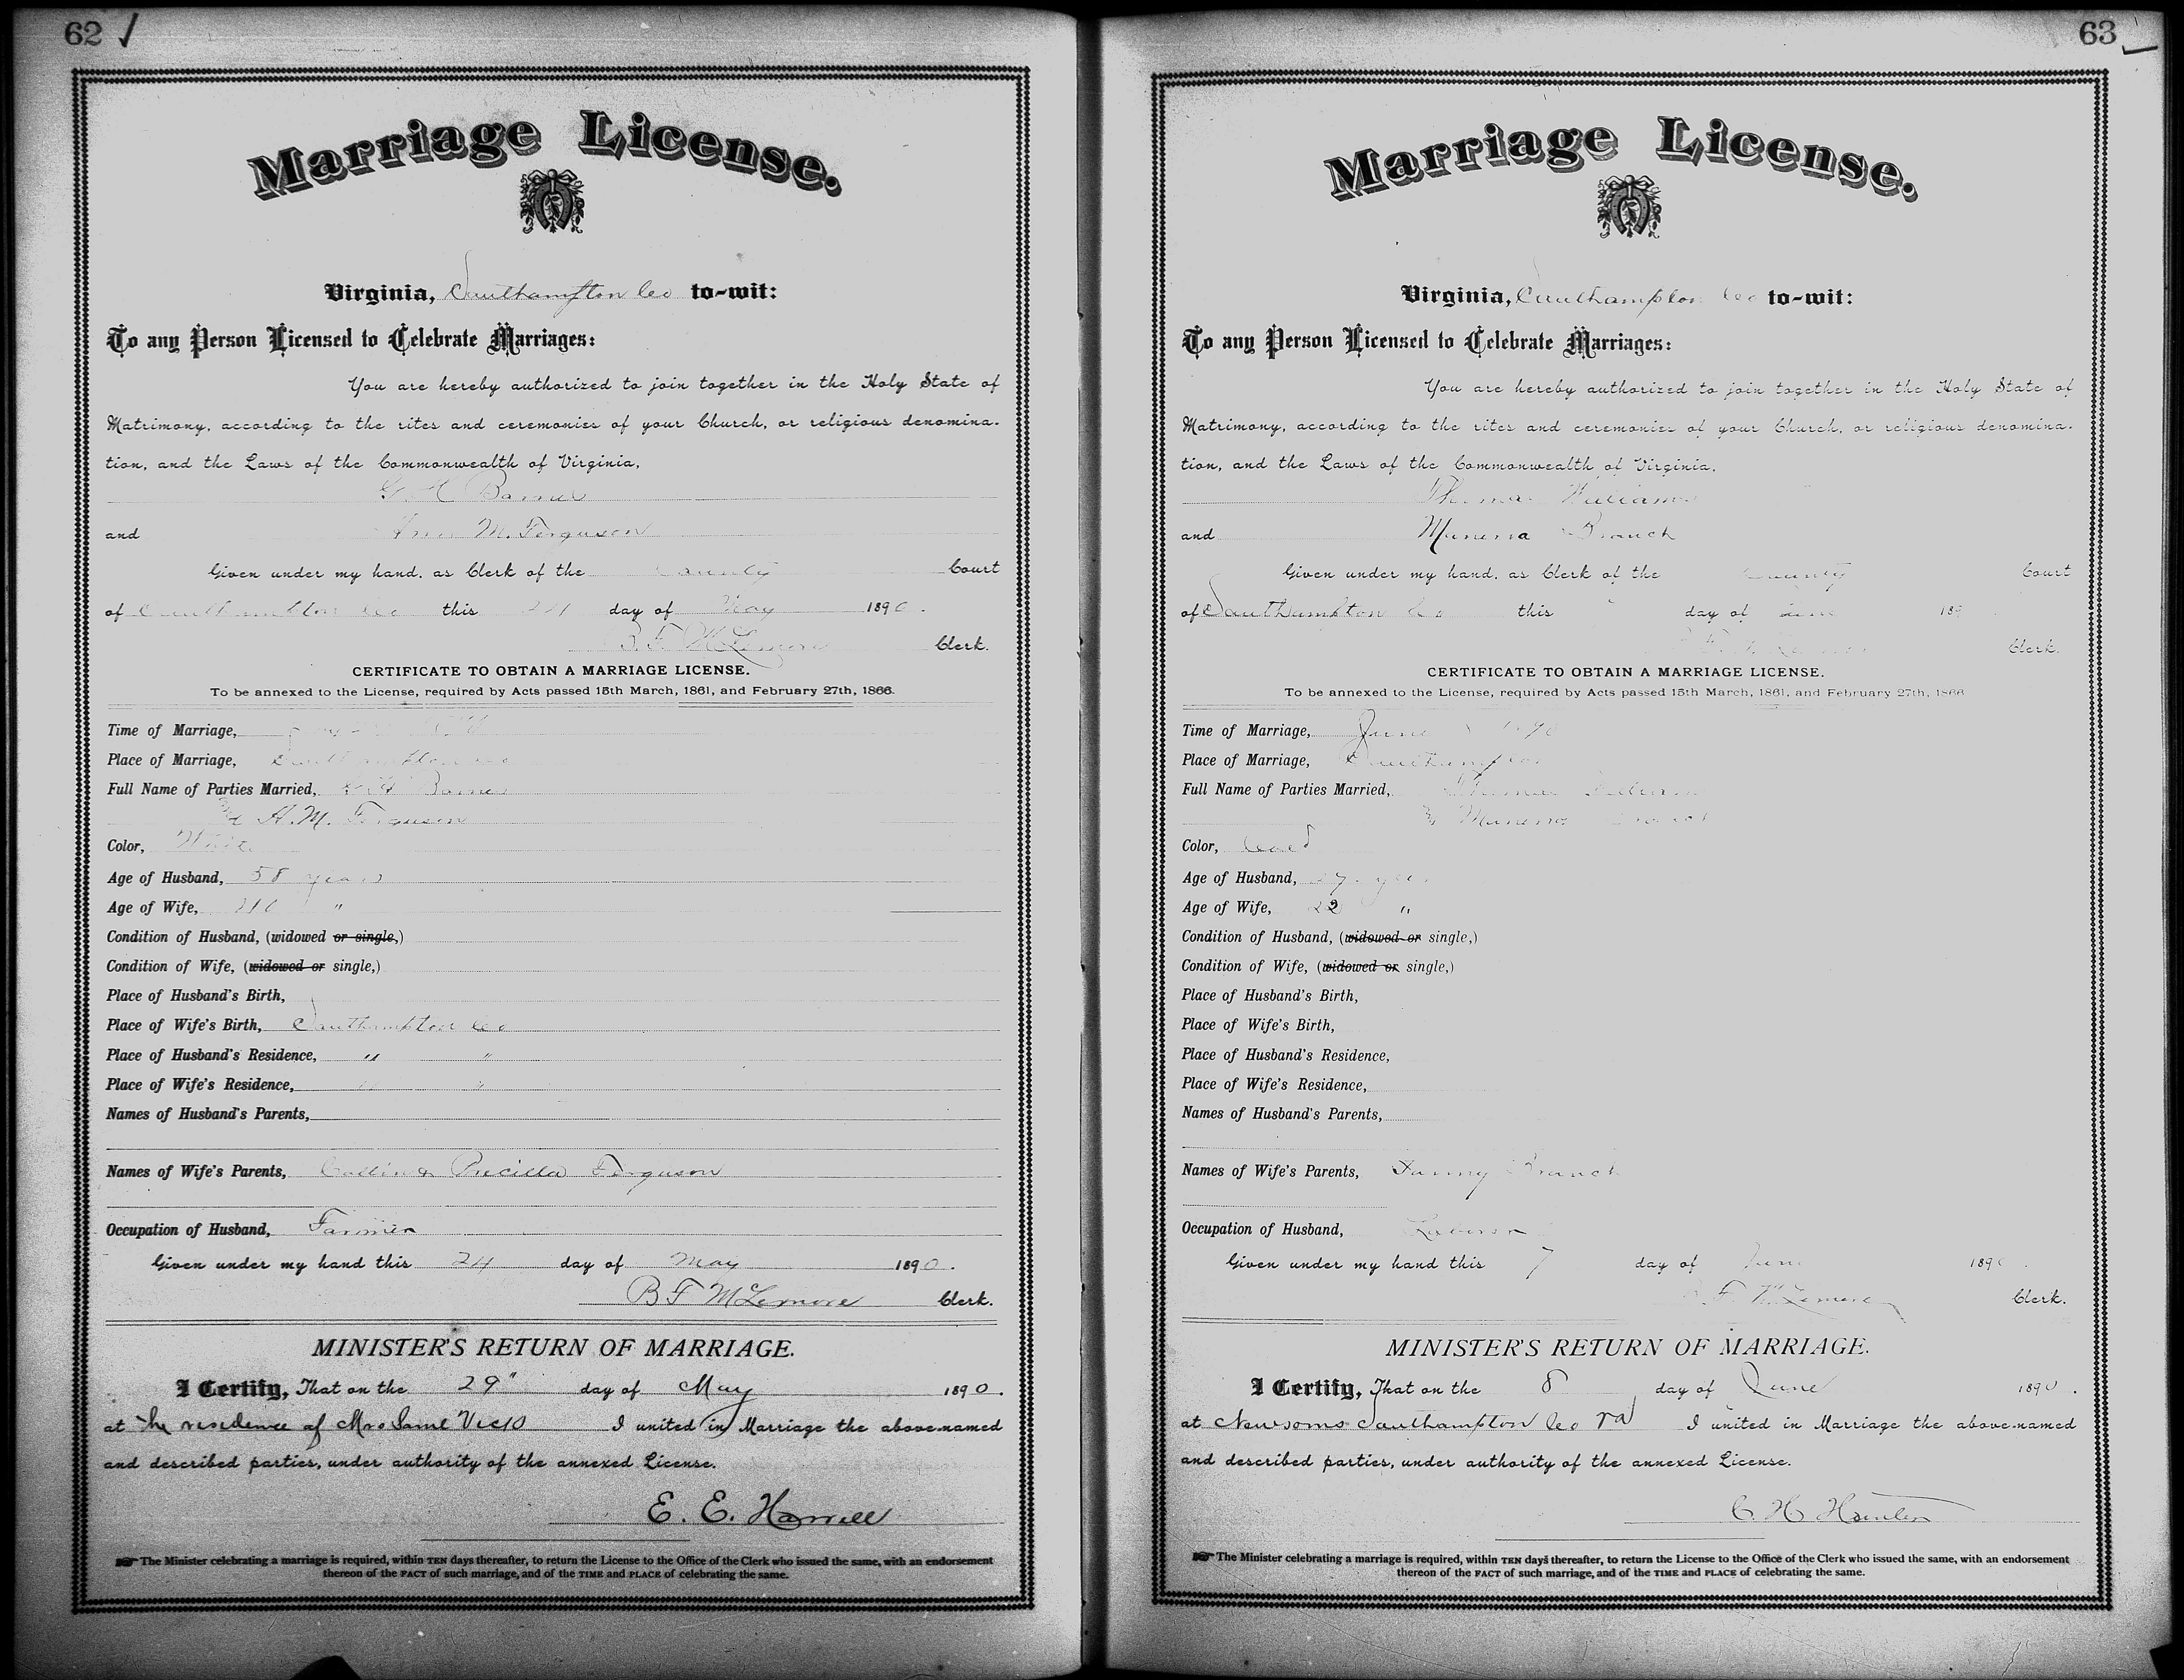 62
Marriage License.
Virginia, Southampton Co to-wit:
To any Person Licensed to Celebrate Marriages:
You are hereby authorized to join together in the Holy State of
Matrimony, according to the rites and ceremonies of your Church, or religious denomina-
tion, and the Laws of the Commonwealth of Virginia,
G. H Barnes
and M. Ferguson
Given under my hand, as Clerk of the County Court
of Southampton Co this 24 day of May 1890.
B. F. McLemore Clerk.
CERTIFICATE TO OBTAIN A MARRIAGE LICENSE.
To be annexed to the License, required by Acts passed 15th March, 1861, and February 27th, 1866.
Time of Marriage,
Place of Marriage, Southampton Co
Full Name of Parties Married, G. H Barnes
& A. M. Ferguson
Color, White
Age of Husband, 58 years
Age of Wife, "
Condition of Husband, (widowed or single,)
Condition of Wife, (widowed or single,)
Place of Husband's Birth,
Place of Wife's Birth, Southampton Co
Place of Husband's Residence, " "
Place of Wife's Residence, " "
Names of Husband's Parents,
Names of Wife's Parents, & Precilla Ferguson
Occupation of Husband, Farmer
Given under my hand this 24 day of May 1890.
B F McLemore Clerk.
MINISTER'S RETURN OF MARRIAGE.
I Certify, That on the 29" day of May 1890.
at the residence of Mrs I united in Marriage the above-named
and described parties, under authority of the annexed License.
E. E. Harrell
The Minister celebrating a marriage is required, within TEN days thereafter, to return the License to the Office of the Clerk who issued the same, with an endorsement
thereon of the FACT of such marriage, and of the TIME and PLACE of celebrating the same.
63
Marriage License.
Virginia, Southampton Co to-wit:
To any Person Licensed to Celebrate Marriages:
You are hereby authorized to join together in the Holy State of
Matrimony, according to the rites and ceremonies of your Church, or religious denomina-
tion, and the Laws of the Commonwealth of Virginia,
Thomas Williams
and Munerva Branch
Given under my hand, as Clerk of the County Court
of Southampton Co this day of June 189
Clerk.
CERTIFICATE TO OBTAIN A MARRIAGE LICENSE.
To be annexed to the License, required by Acts passed 15th March, 1861, and February 27th, 1866
Time of Marriage, June 8 1890
Place of Marriage, Southampton
Full Name of Parties Married, Thomas William
& Munerva Branch
Color, Cold
Age of Husband, 27 years
Age of Wife, 22 "
Condition of Husband, (widowed or single,)
Condition of Wife, (widowed or single,)
Place of Husband's Birth,
Place of Wife's Birth,
Place of Husband's Residence,
Place of Wife's Residence,
Names of Husband's Parents,
Names of Wife's Parents, Fanny Branch
Occupation of Husband, Laborer
Given under my hand this 7 day of June 1890.
B. F. McLemore Clerk.
MINISTER'S RETURN OF MARRIAGE.
I Certify, That on the 8 day of June 1890.
at Newsoms Southampton Co Va I united in Marriage the above-named
and described parties, under authority of the annexed License.
C. H Hamlin
The Minister celebrating a marriage is required, within TEN days thereafter, to return the License to the Office of the Clerk who issued the same, with an endorsement
thereon of the FACT of such marriage, and of the TIME and PLACE of celebrating the same.